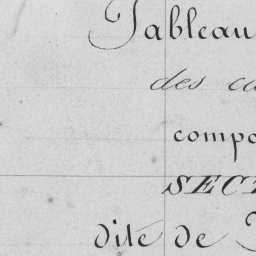 Tableau
des ca
compo
SECT
dite de